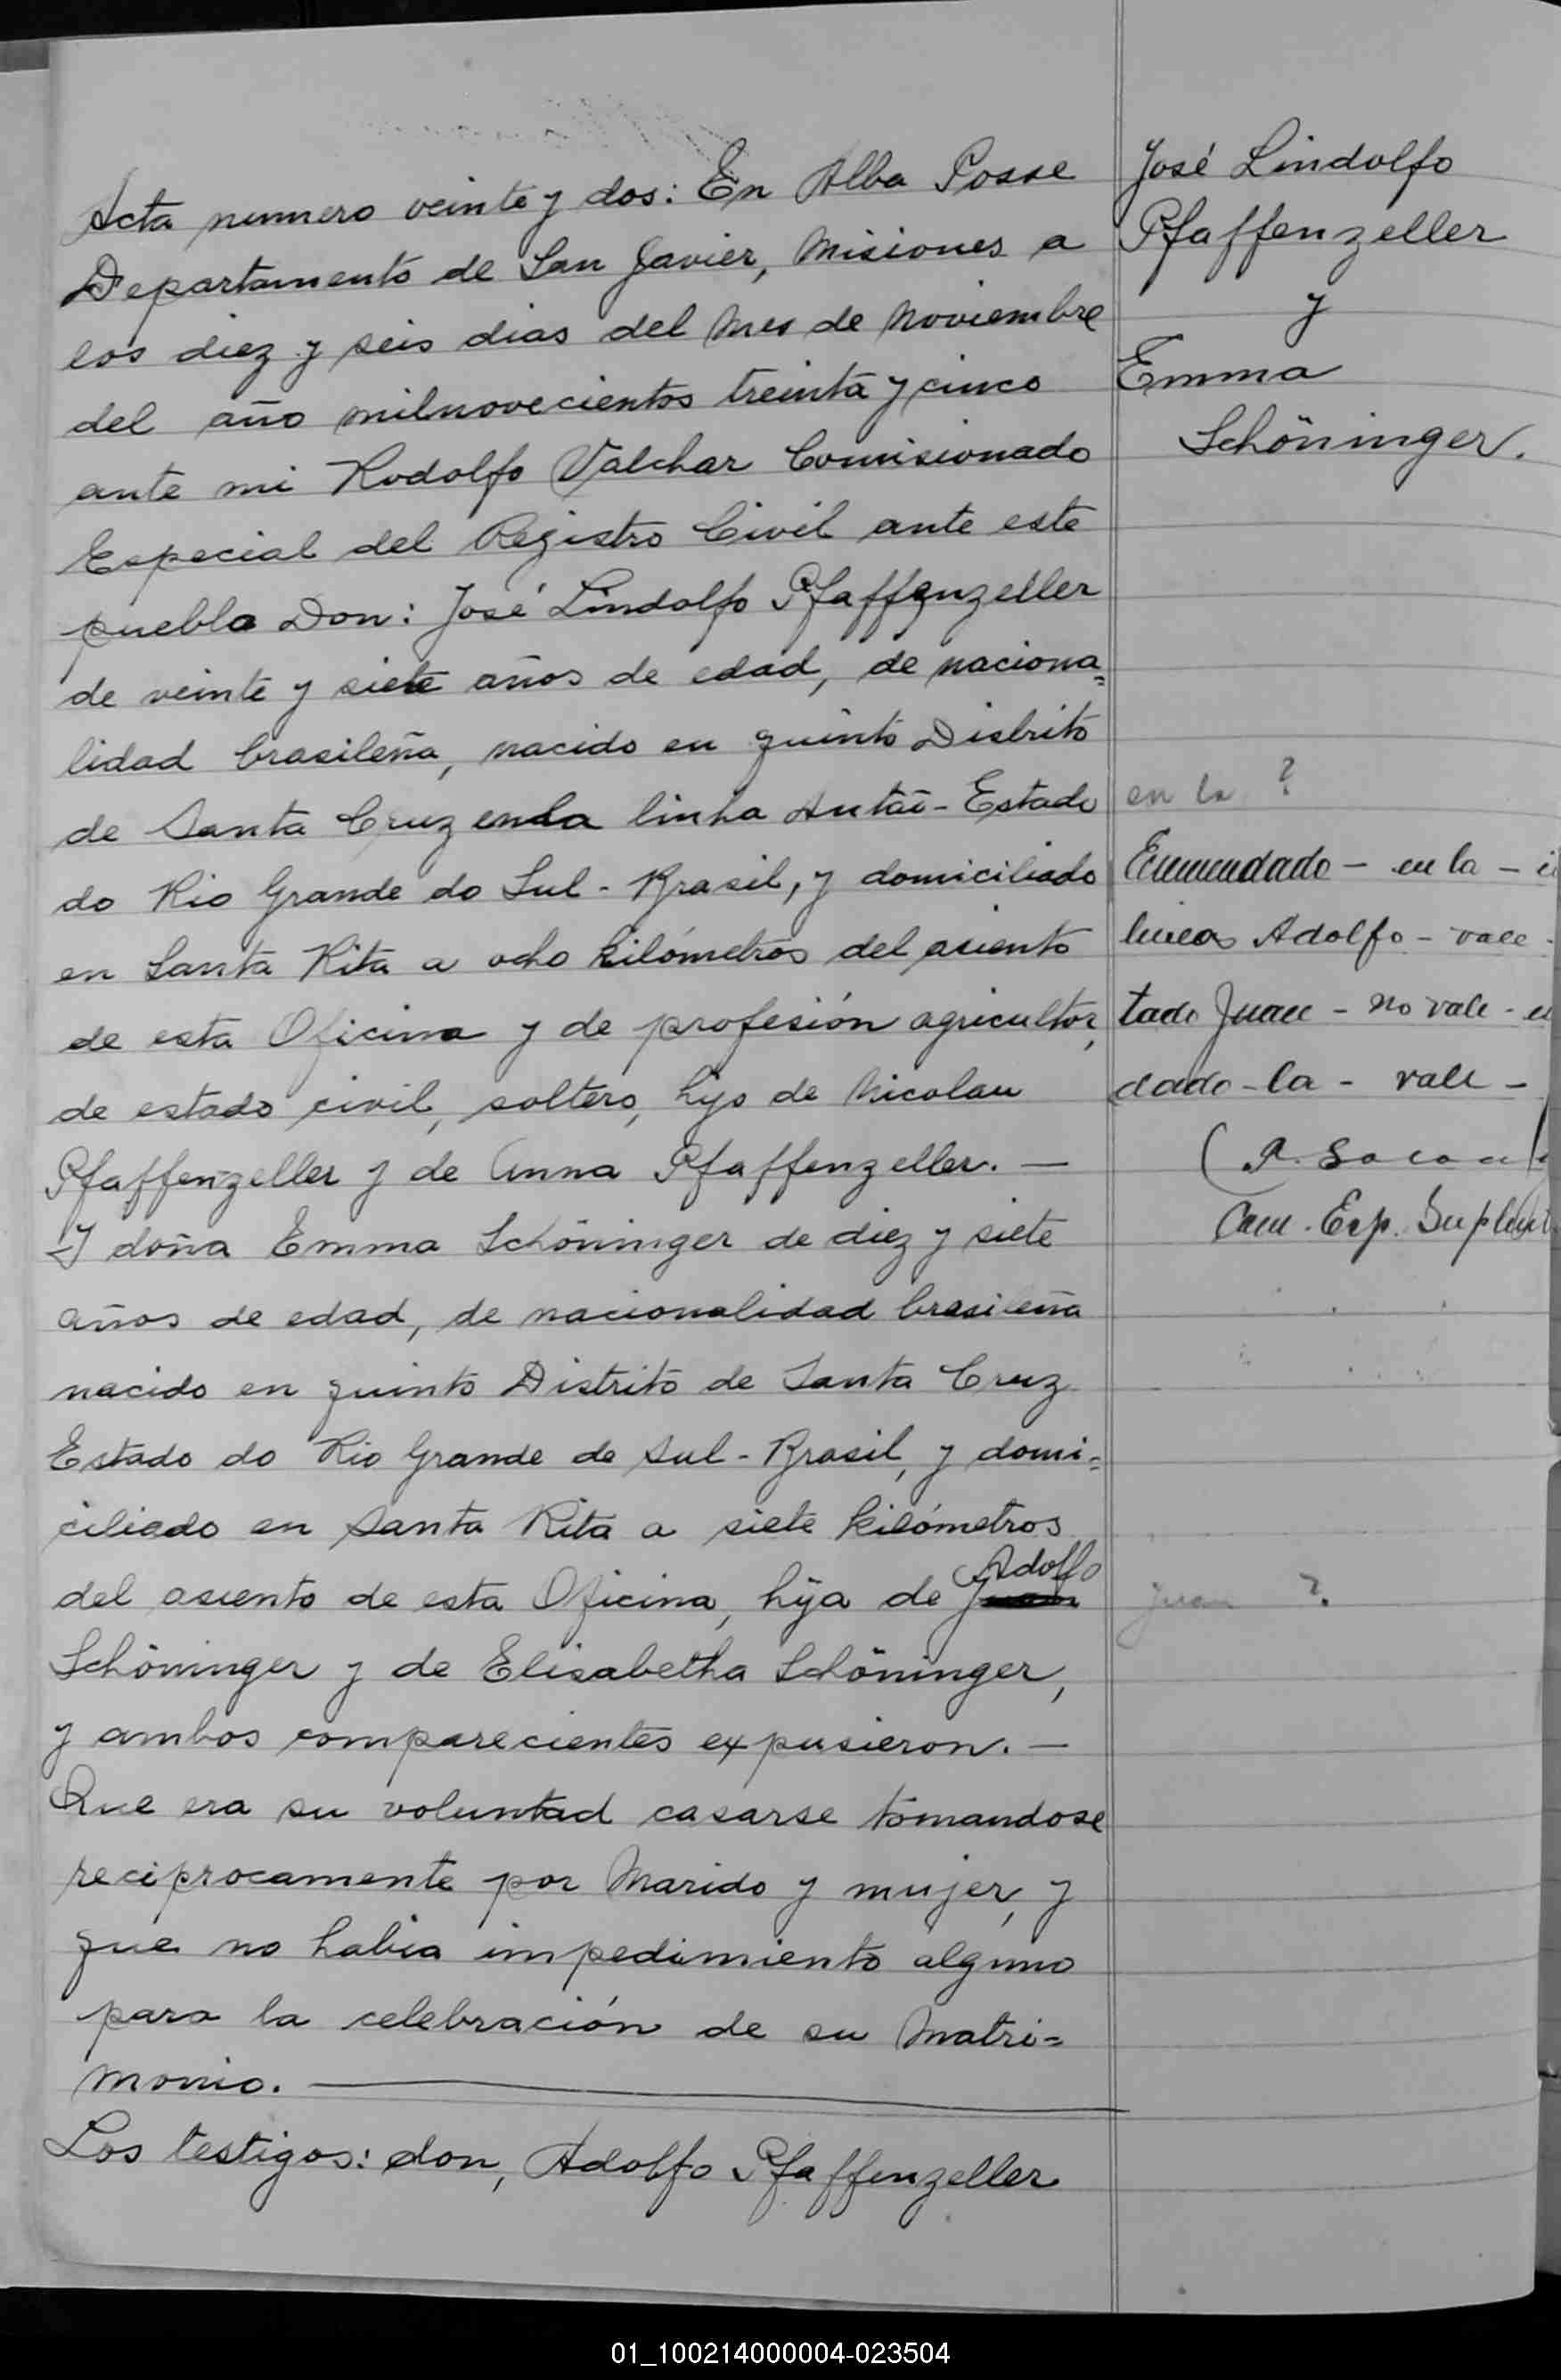 Acta numero veinte y dos: En Alba Posse
Departamento de San Javier, Misiones a
los diez y seis dias del mes de Noviembre
del año milnovecientos treinta y cinco
ante mi Rodolfo Valchar Comisionado
Especial del Registro Civil ante este
pueblo Don: José Lindolfo Pfaffenzeller
de veinte y siete años de edad, de naciona=
lidad brasileña, nacido en quinto Distrito
de Santa Cruz en la linha Antão - Estado
do Rio Grande do Sul - Brasil, y domiciliado
en Santa Rita a ocho kilómetros del asiento
de esta Oficina y de profesión agricultor,
de estado civil, soltero, hijo de Nicolau
Pfaffenzeller y de Anna Pfaffenzeller. —
Y doña Emma Schöninger de diez y siete
años de edad, de nacionalidad brasileña
nacido en quinto Distrito de Santa Cruz
Estado do Rio Grande do Sul - Brasil, y domi=
ciliado en Santa Rita a siete kilómetros
Adolfo
del asiento de esta Oficina, hija de Juan
Schöninger y de Elisabetha Schöninger,
y ambos comparecientes expusieron. —
Que era su voluntad casarse tomandose
reciprocamente por Marido y mujer, y
que no habia impedimiento alguno
para la celebración de su Matri=
monio. —
Los testigos: don, Adolfo Pfaffenzeller
José Lindolfo
Pfaffenzeller
y
Emma
Schöninger.
en la ?
Enmendado - en la -
lineas Adolfo - vale -
tado Juan - no vale -
dado - la - vale -
Com. Esp. Suplent
Juan ?.
01_100214000004-023504